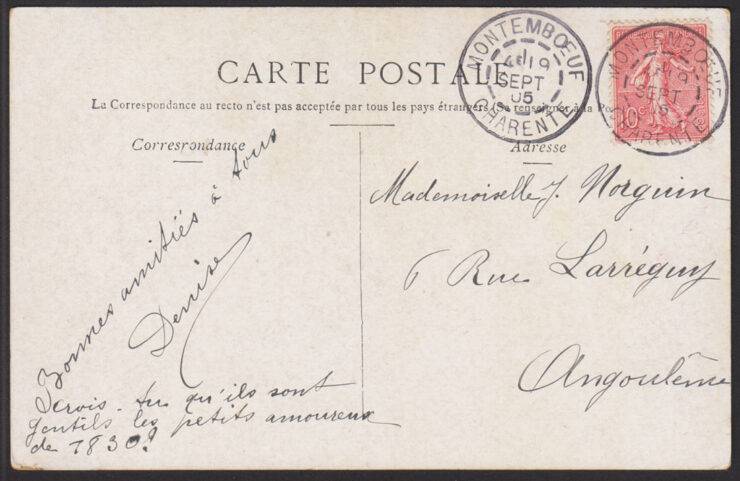 CARTE POSTALE
La Correspondance au recto n'est pas acceptée par tous les pays étrangers (Se renseigner à la Po
Correspondance
Adresse
MONTEMBŒUF
19
SEPT
05
CHARENTE
MONTEMBŒUF
19
SEPT
05
CHARENTE
10c
Bonnes amitiés à tous
Denise
tu qu'ils sont
gentils les petits amoureux
de 1830?
Mademoiselle J. Norguin
6 Rue Larréguy
Angoulême